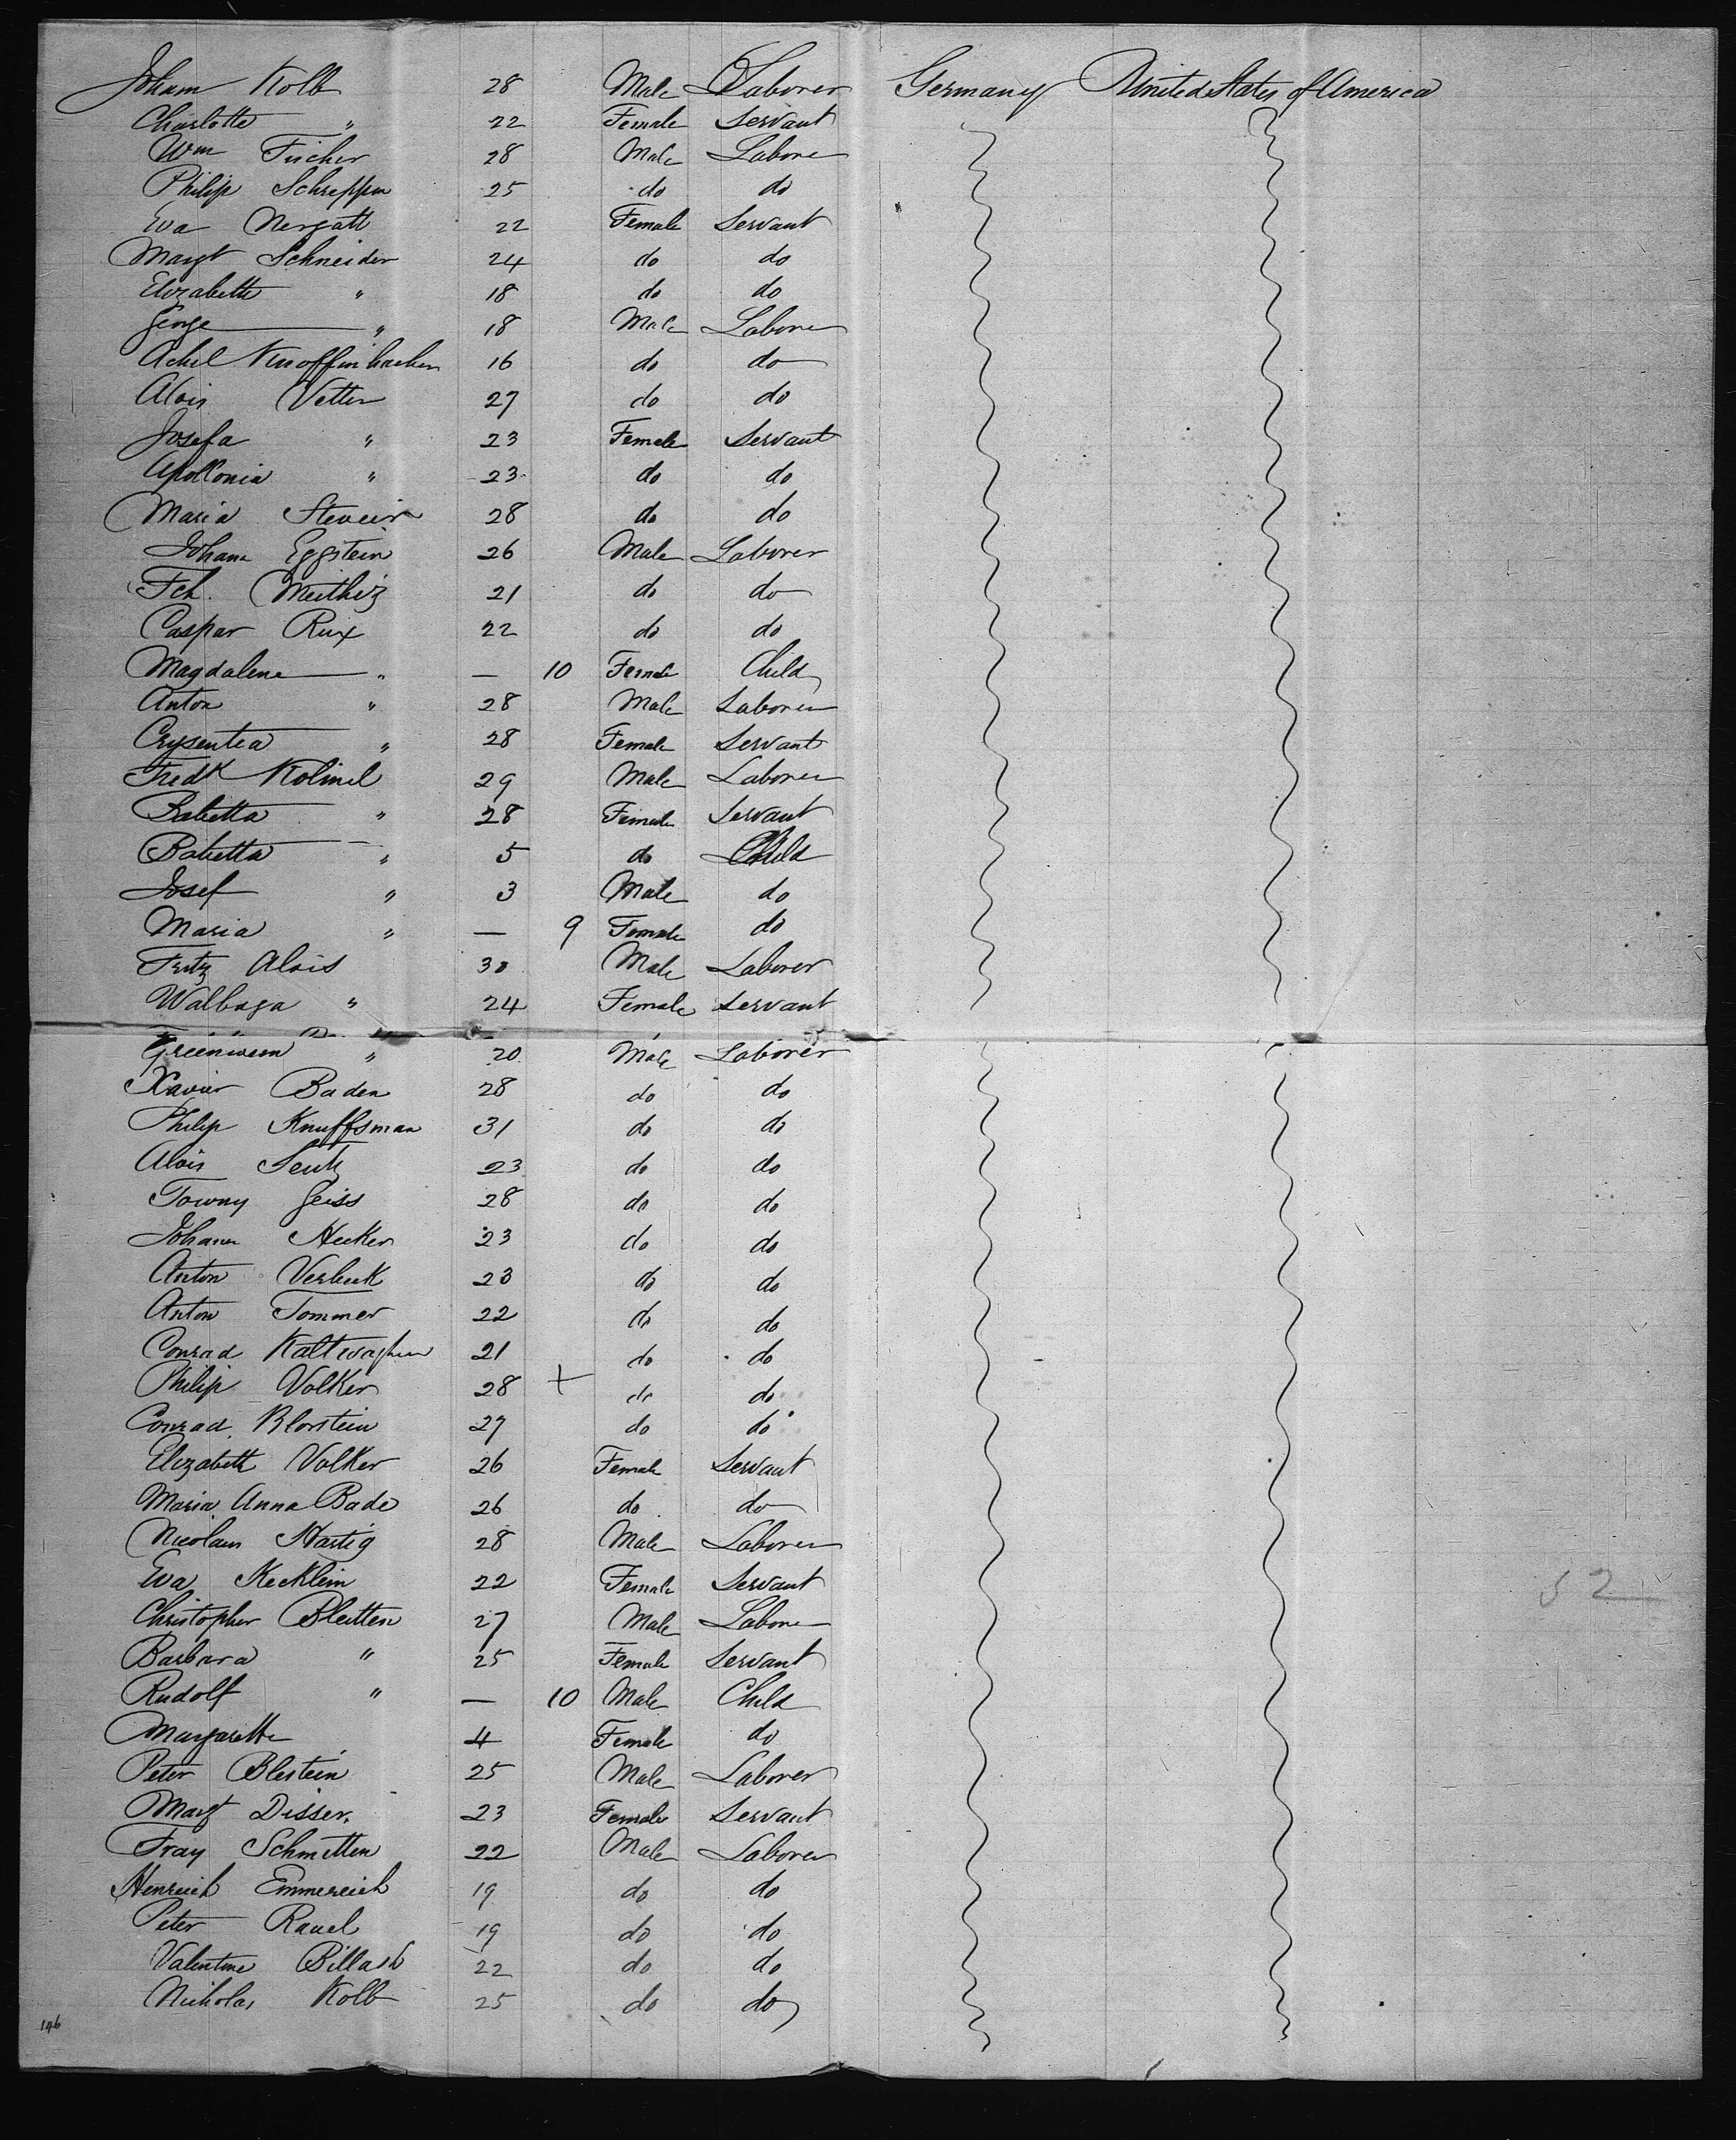 Johann Kolb 28 Male Laborer Germany United States of America
Charlotte " 22 Female Servant
Wm Fischer 28 Male Laborer
Philip Schreppen 25 do do
Eva 22 Female Servant
Margt Schneider 24 do do
Elizabeth " 18 do do
George " 18 Male Laborer
16 do do
Alois Vetter 27 do do
Josefa " 23 Female Servant
Apollonia " 23 do do
Maria 28 do do
Johann Eggstein 26 Male Laborer
Fch. 21 do do
Caspar Rux 22 do do
Magdalena " — 10 Female Child
Anton " 28 Male Laborer
Crysentea " 28 Female Servant
Fredk Kolmel 29 Male Laborer
Babetta " 28 Female Servant
Babetta " 5 do Child
Josef " 3 Male do
Maria " — 9 Female do
Fritz Alois 30 Male Laborer
Walbuga " 24 Female Servant
" 20 Male Laborer
Xavier Baden 28 do do
Philip Knuffsman 31 do do
Alois 23 do do
Towny Geiss 28 do do
Johann Hecker 23 do do
Anton Verbeck 23 do do
Anton Tommer 22 do do
Conrad 21 do do
Philip Volker 28 + do do
Conrad Blorstein 27 do do
Elizabeth Volker 26 Female Servant
Maria Anna Bade 26 do do
Nicolaus Hartig 28 Male Laborer
Eva Kecklein 22 Female Servant
Christopher Bleitten 27 Male Laborer
Barbara " 25 Female Servant
Rudolf " — 10 Male Child
Margarette 4 Female do
Peter Blestein 25 Male Laborer
Margt Disser. 23 Female Servant
Fray Schmitten 22 Male Laborer
Henreich Emmereich 19 do do
Peter Rauel 19 do do
Valentine Billash 22 do do
Nicholas Kolb 25 do do
52
146